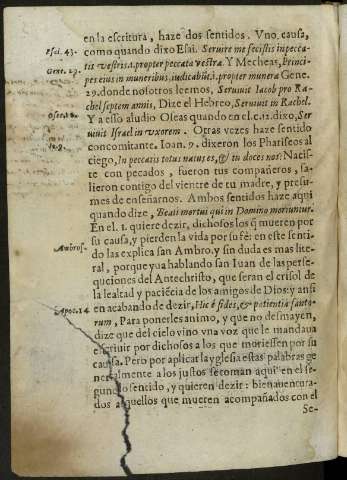 en la escritura, haze dos sentidos. Vno, causa,
Esai. 43. como quando dixo Esai. Seruire me fecistis in pecca-
tis vestris.i.propter peccata vestra. Y Mecheas, Princi-
Gene. 29. pes eius in muneribus, iudicabũt.i.propter munera Gene.
29. donde nosotros leemos, Seruiuit Iacob pro Ra-
chel septem annis, Dize el Hebreo, Seruiuit in Rachel.
Osee. 12. Y a esso aludio Oseas quando en el.c.12.dixo, Ser
uiuit Israel in vxorem. Otras vezes haze sentido
Io.9. concomitante. Ioan. 9. dixeron los Phariseos al
ciego, In peccatis totus natus es, & tu doces nos? Nacis-
te con pecados, fueron tus compañeros, sa-
lieron contigo del vientre de tu madre, y presu-
mes de enseñarnos. Ambos sentidos haze aqui
quando dize, Beati mortui qui in Domino moriuntur.
En el. 1. quiere dezir, dichosos los q̃ mueren por
su causa, y pierden la vida por su fè: en este senti-
Ambros. do las explica san Ambro.y sin duda es mas lite-
ral, porque yua hablando san Iuan de las perse-
quciones del Antechristo, que seran el crisol de
la lealtad y paciẽcia de los amigos de Dios: y ansi
Apoc. 14 en acabando de dezir, Hic est fides, & patientia sancto-
rum, Para ponerles animo, y que no desmayen,
dize que del cielo vino vna voz que le mandaua
escriuir por dichosos a los que moriessen por su
causa. Pero por aplicar la yglesia estas palabras ge
neralmente a los justos se toman aqui en el se-
gundo sentido, y quieren dezir: bienauentura-
dos aquellos que mueren acompañados con el
Se-